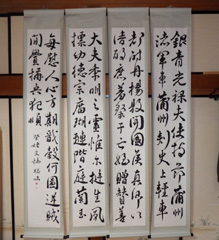 銀青光禄大夫使持節蒲州
諸軍事蒲州刺史上輕車
都尉丹楊縣開國侯真卿以
清酌庶羞祭于亡姪贈贊善
大夫季明之靈惟爾挺生夙
標幼德宗廟瑚璉階庭蘭玉
每慰人心方期戩穀何圖逆賊
閒釁稱兵犯順